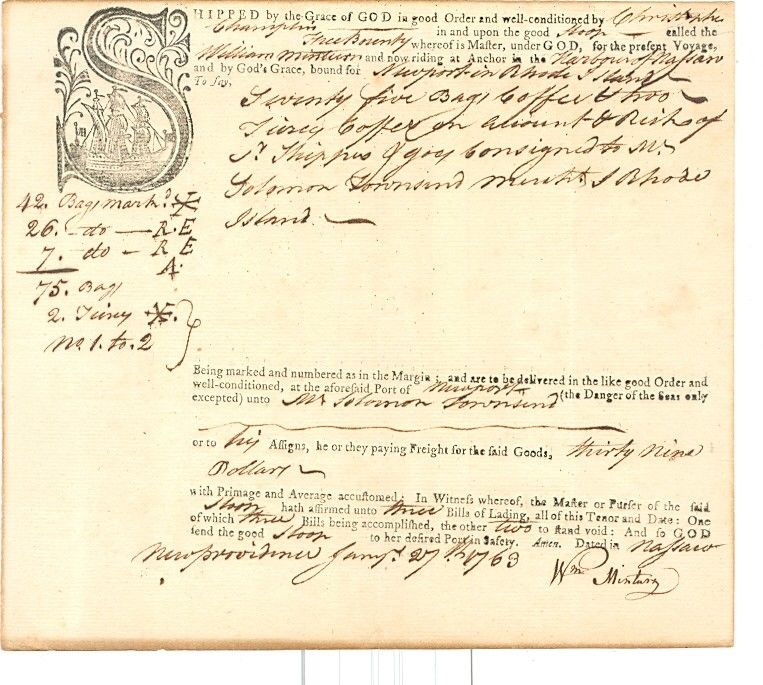 SHIPPED by the Grace of GOD in good Order and well-conditioned by Christopher
Champlin in and upon the good Sloop called the
Free Bounty whereof is Master, under GOD, for the present Voyage,
William Minturn and now riding at Anchor in the Harbour of Nassaw
and by God's Grace, bound for Newport in Rhode Island
To say,
Seventy five Bags Coffee & two
Tierey Coffee on Account & Risk of
Sd. Shippers & goes Consigned to Mr.
Solomon Townsend mercht. I Rhode
Island.
42. Bags markd.
26. do — R.E
7. do — R E
A.
75. Bags
2. Tiercy
No. 1. to. 2
Being marked and numbered as in the Margin; and are to be delivered in the like good Order and
well-conditioned, at the aforesaid Port of Newport (the Danger of the Seas only
excepted) unto Mr. Solomon Townsend
or to his Assigns, he or they paying Freight for the said Goods, thirty Nine
Dollars
with Primage and Average accustomed: In Witness whereof, the Master or Purser of the said
Sloop hath affirmed unto three Bills of Lading, all of this Tenor and Date: One
of which three Bills being accomplished, the other two to stand void: And so GOD
send the good Sloop to her desired Port in Safety. Amen. Dated in Nassaw
Newprovidence Jany. 27th. 1763
Wm Minturn